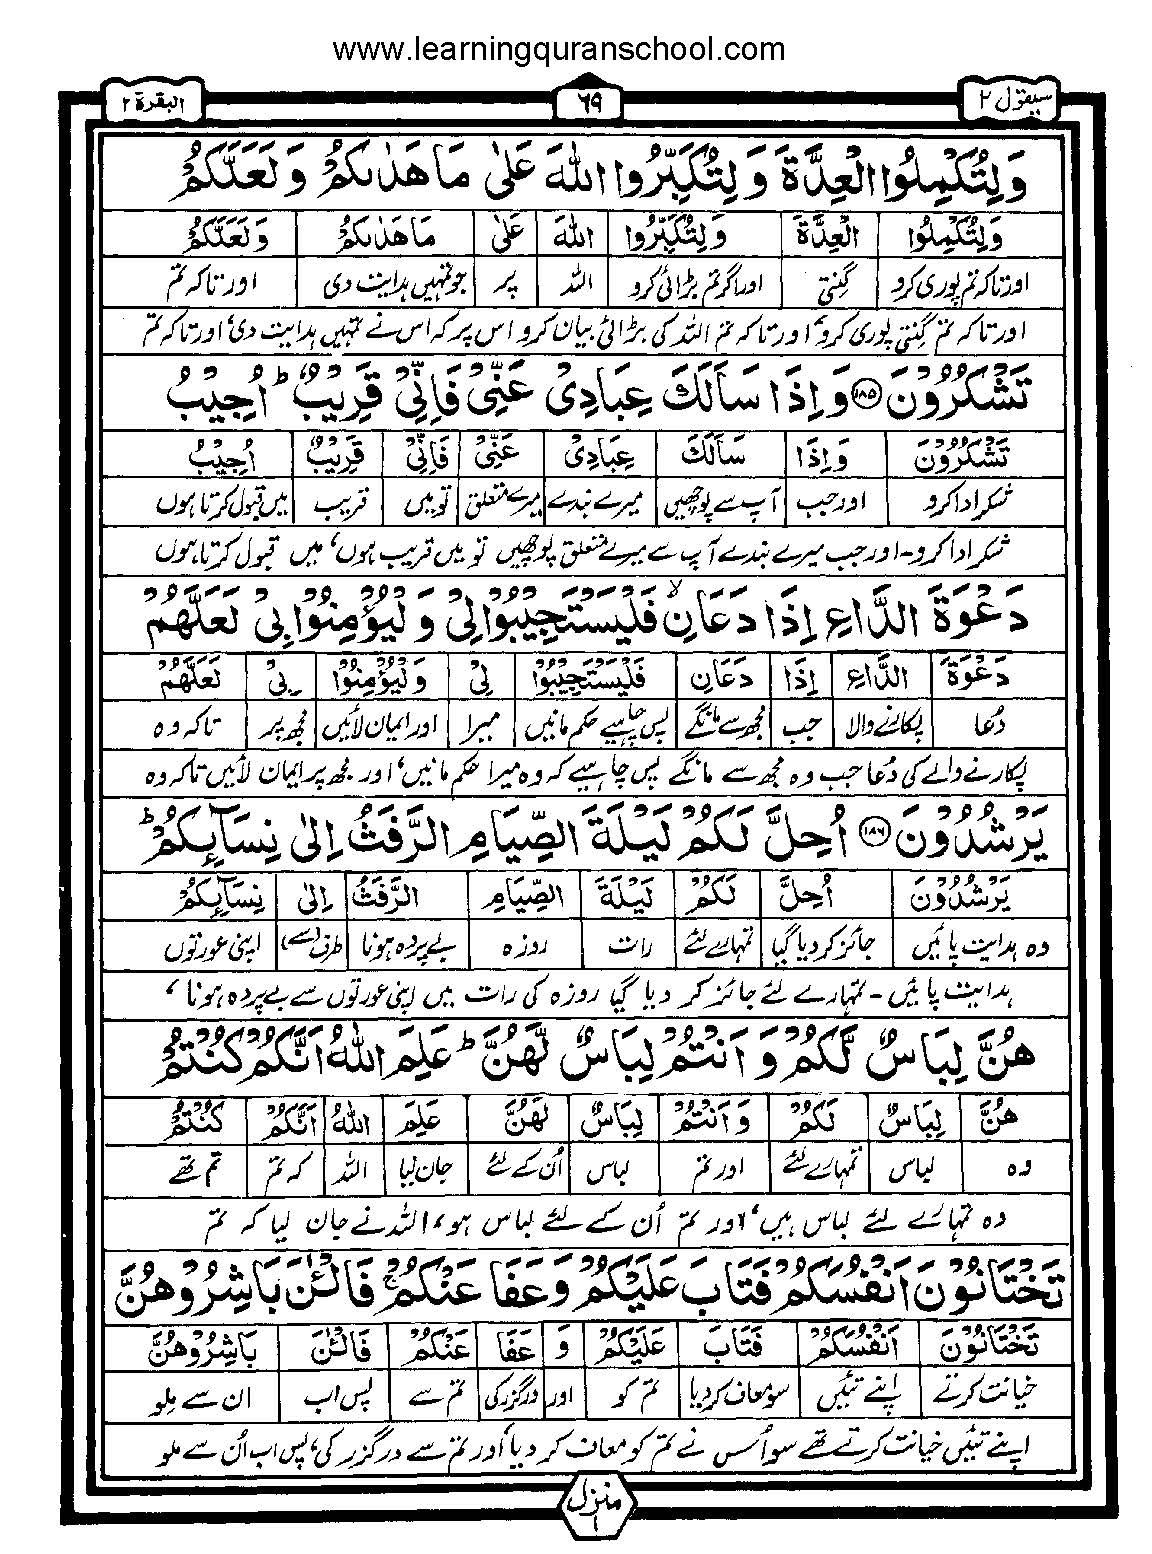 www.learningquranschool.com
سيقول ٢ ٦٩ البقرة ٢
وَلِتُكْمِلُوا الْعِدَّةَ وَلِتُكَبِّرُوا اللّٰهَ عَلٰى مَا هَدٰىكُمْ وَلَعَلَّكُمْ
وَلِتُكْمِلُوا الْعِدَّةَ وَلِتُكَبِّرُوا اللّٰهَ عَلٰى مَا هَدٰىكُمْ وَلَعَلَّكُمْ
اور تاکہ تم پوری کرو گنتی اور اگر تم بڑائی کرو اللہ پر جو تمہیں ہدایت دی اور تاکہ تم
اور تاکہ تم گنتی پوری کرو، اور تاکہ تم اللہ کی بڑائی بیان کرو اس پر کہ اس نے تمہیں ہدایت دی، اور تاکہ تم
تَشْكُرُوْنَ ۝١٨٥ وَاِذَا سَاَلَكَ عِبَادِيْ عَنِّيْ فَاِنِّيْ قَرِيْبٌ ؕ اُجِيْبُ
تَشْكُرُوْنَ وَاِذَا سَاَلَكَ عِبَادِيْ عَنِّيْ فَاِنِّيْ قَرِيْبٌ اُجِيْبُ
شکر ادا کرو اور جب آپ سے پوچھیں میرے بندے میرے متعلق تو میں قریب میں قبول کرتا ہوں
شکر ادا کرو۔ اور جب میرے بندے آپ سے میرے متعلق پوچھیں تو میں قریب ہوں، میں قبول کرتا ہوں
دَعْوَةَ الدَّاعِ اِذَا دَعَانِ ۙ فَلْيَسْتَجِيْبُوْا لِيْ وَلْيُؤْمِنُوْا بِيْ لَعَلَّهُمْ
دَعْوَةَ الدَّاعِ اِذَا دَعَانِ فَلْيَسْتَجِيْبُوْا لِيْ وَلْيُؤْمِنُوْا بِيْ لَعَلَّهُمْ
دُعا پکارنے والا جب مجھ سے مانگے پس چاہیے حکم مانیں میرا اور ایمان لائیں مجھ پر تاکہ وہ
پکارنے والے کی دُعا جب وہ مجھ سے مانگے پس چاہیے کہ وہ میرا حکم مانیں، اور مجھ پر ایمان لائیں تاکہ وہ
يَرْشُدُوْنَ ۝١٨٦ اُحِلَّ لَكُمْ لَيْلَةَ الصِّيَامِ الرَّفَثُ اِلٰى نِسَآئِكُمْ ؕ
يَرْشُدُوْنَ اُحِلَّ لَكُمْ لَيْلَةَ الصِّيَامِ الرَّفَثُ اِلٰى نِسَآئِكُمْ
وہ ہدایت پائیں جائز کر دیا گیا تمہارے لئے رات روزہ بے پردہ ہونا طرف (سے) اپنی عورتوں
ہدایت پائیں۔ تمہارے لئے جائز کر دیا گیا روزہ کی رات میں اپنی عورتوں سے بے پردہ ہونا،
هُنَّ لِبَاسٌ لَّكُمْ وَاَنْتُمْ لِبَاسٌ لَّهُنَّ ؕ عَلِمَ اللّٰهُ اَنَّكُمْ كُنْتُمْ
هُنَّ لِبَاسٌ لَكُمْ وَاَنْتُمْ لِبَاسٌ لَهُنَّ عَلِمَ اللّٰهُ اَنَّكُمْ كُنْتُمْ
وہ لباس تمہارے لئے اور تم لباس اُن کے لئے جان لیا اللہ کہ تم تم تھے
وہ تمہارے لئے لباس ہیں، اور تم اُن کے لئے لباس ہو، اللہ نے جان لیا کہ تم
تَخْتَانُوْنَ اَنْفُسَكُمْ فَتَابَ عَلَيْكُمْ وَعَفَا عَنْكُمْ ۚ فَالْئٰنَ بَاشِرُوْهُنَّ
تَخْتَانُوْنَ اَنْفُسَكُمْ فَتَابَ عَلَيْكُمْ وَ عَفَا عَنْكُمْ فَالْئٰنَ بَاشِرُوْهُنَّ
خیانت کرتے اپنے تئیں سو معاف کردیا تم کو اور درگزر کی تم سے پس اب ان سے ملو
اپنے تئیں خیانت کرتے تھے سو اُس نے تم کو معاف کر دیا اور تم سے درگزر کی، پس اب اُن سے ملو
منزل ١